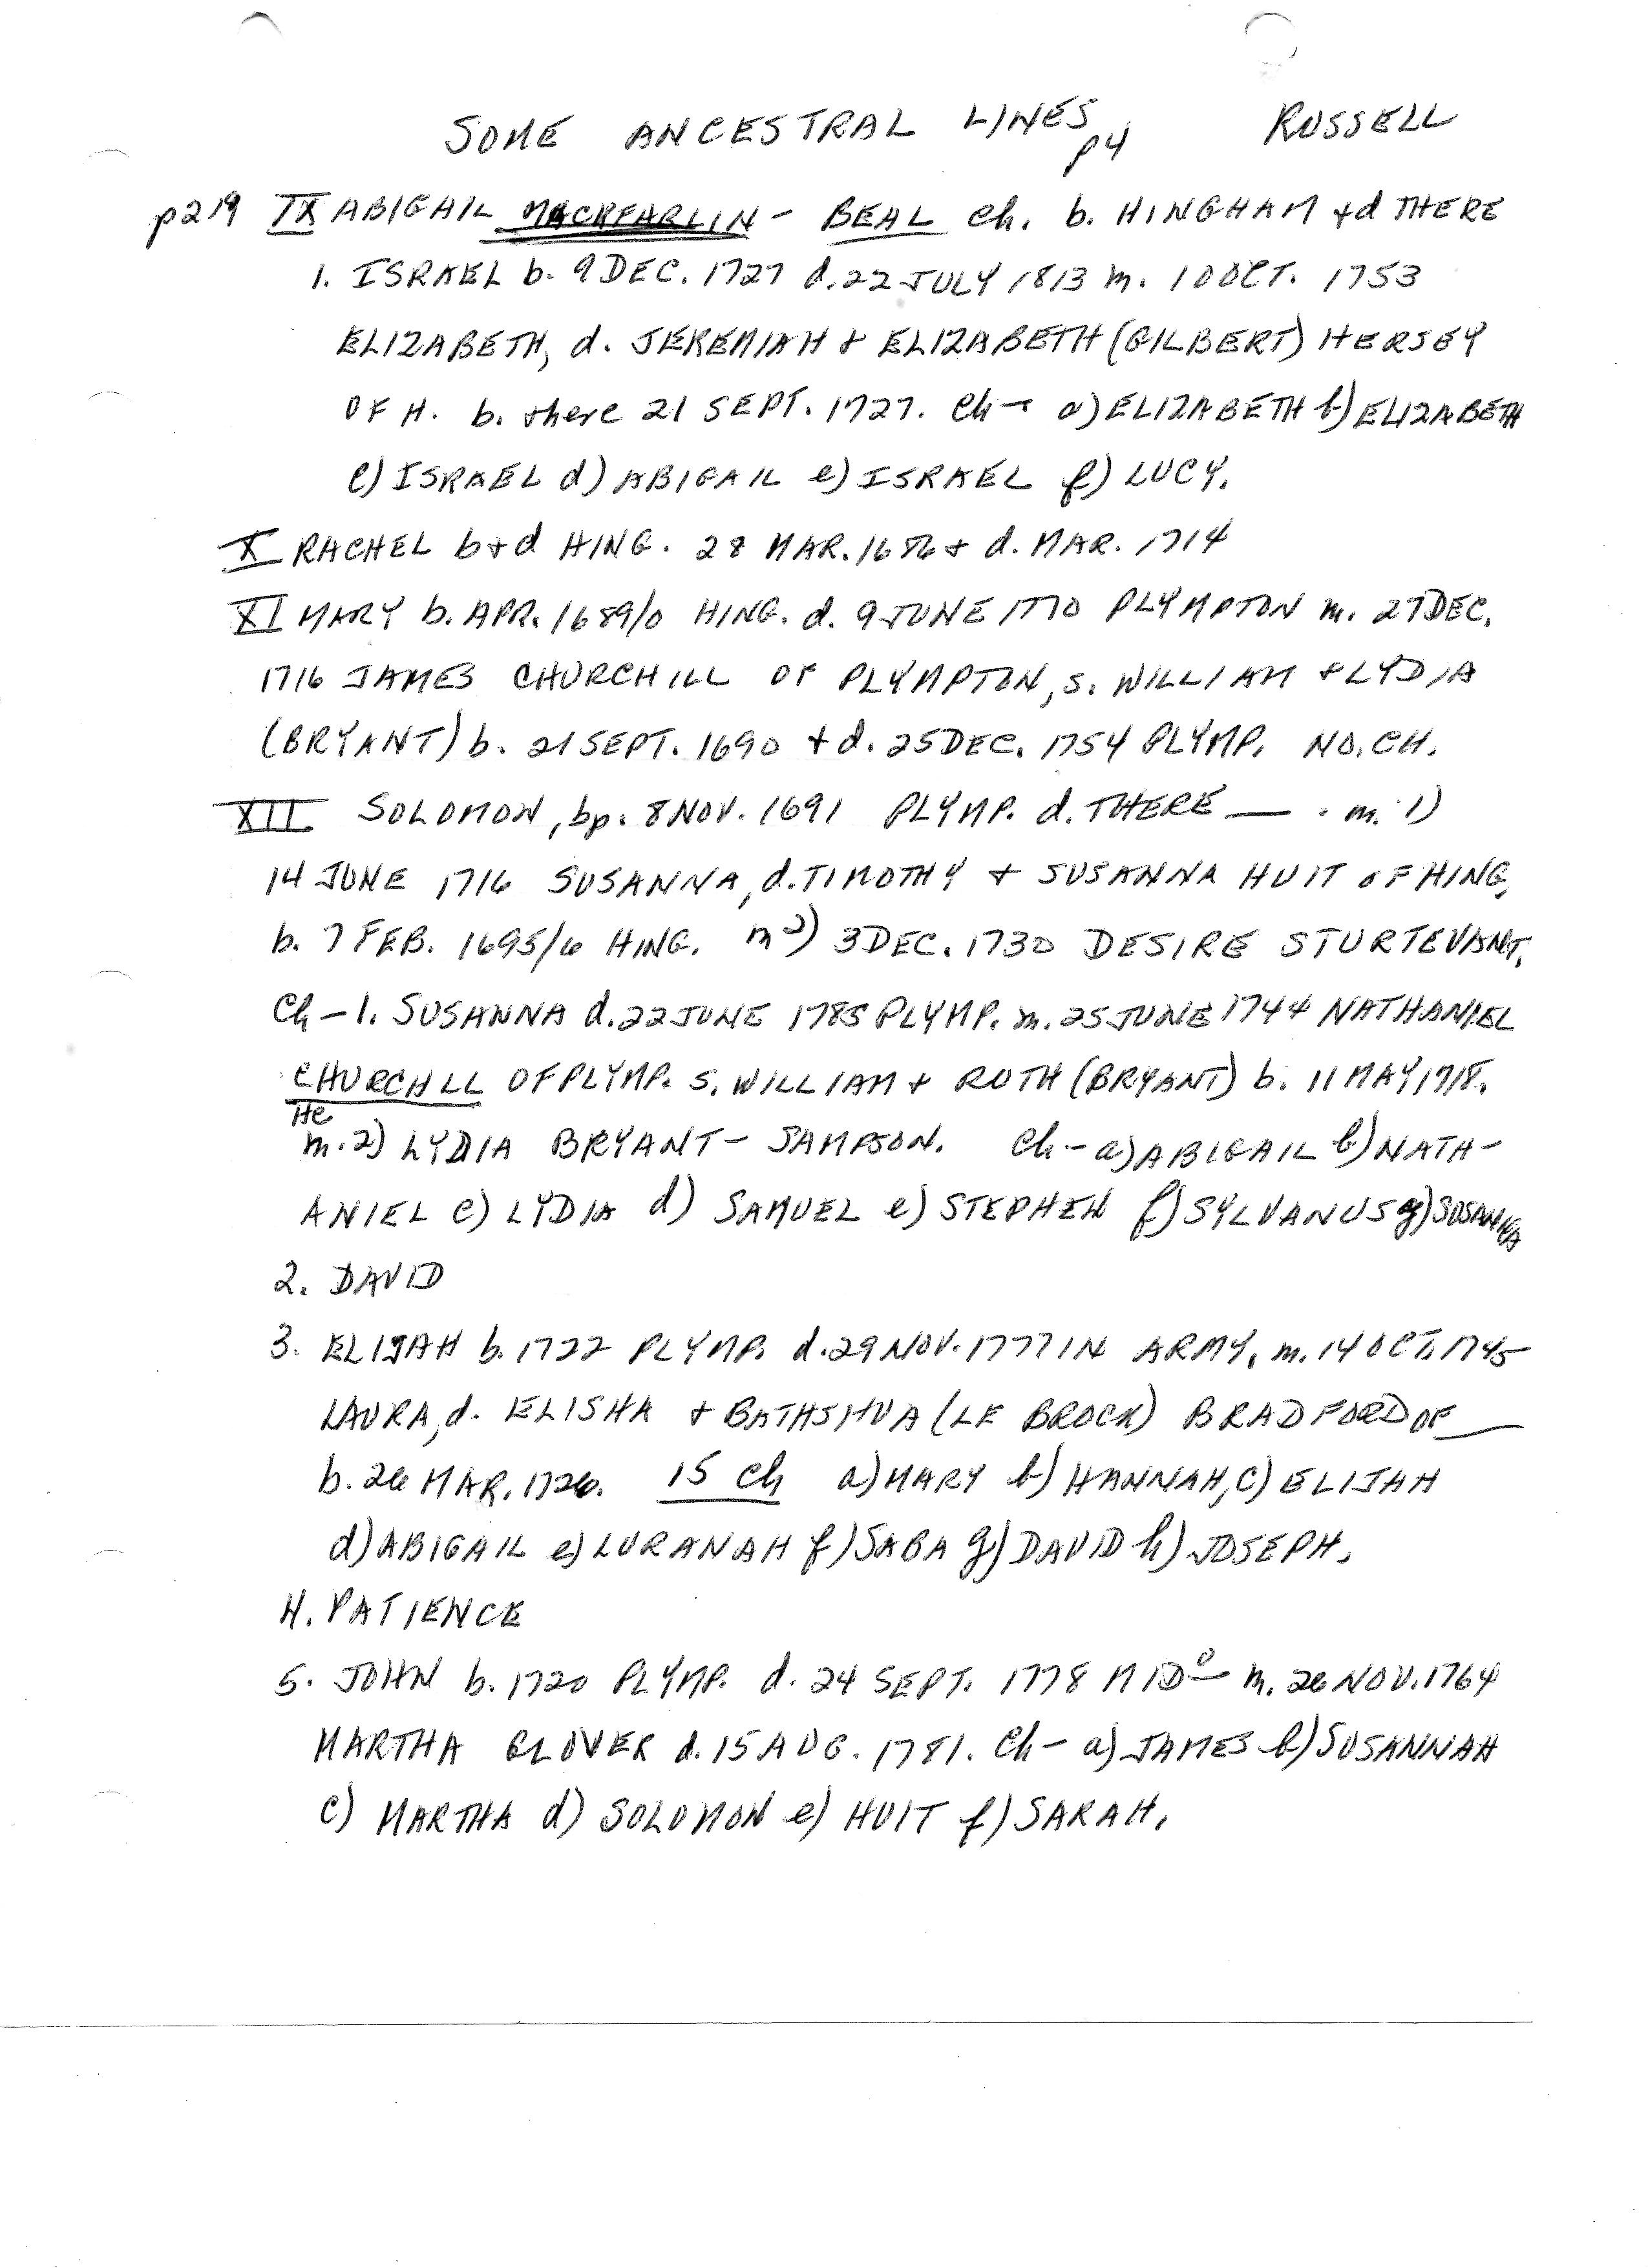 SOME ANCESTRAL LINES RUSSELL
p4
p219 IX ABIGAIL MACKFARLIN - BEAL Ch. b. HINGHAM + d THERE
1. ISRAEL b. 9 DEC. 1727 d. 22 JULY 1813 m. 10 OCT. 1753
ELIZABETH, d. JEREMIAH + ELIZABETH (GILBERT) HERSEY
OF H. b. there 21 SEPT. 1727. Ch - a) ELIZABETH b) ELIZABETH
c) ISRAEL d) ABIGAIL e) ISRAEL f) LUCY.
X RACHEL b + d HING. 28 MAR. 1686 + d. MAR. 1714
XI MARY b. APR. 1689/0 HING. d. 9 JUNE 1770 PLYMPTON m. 27 DEC.
1716 JAMES CHURCHILL OF PLYMPTON, s. WILLIAM + LYDIA
(BRYANT) b. 21 SEPT. 1690 + d. 25 DEC. 1754 PLYMP. NO. CH.
XII SOLOMON, bp. 8 NOV. 1691 PLYMP. d. THERE —. m. 1)
14 JUNE 1716 SUSANNA, d. TIMOTHY + SUSANNA HUIT OF HING,
b. 7 FEB. 1695/6 HING. m 2) 3 DEC. 1730 DESIRE STURTEVANT.
Ch - 1. SUSANNA d. 22 JUNE 1785 PLYMP. m. 25 JUNE 1744 NATHANIEL
CHURCHLL OF PLYMP. s. WILLIAM + RUTH (BRYANT) b. 11 MAY 1718.
He
m. 2) LYDIA BRYANT - SAMPSON. Ch - a) ABIGAIL b) NATH-
ANIEL c) LYDIA d) SAMUEL e) STEPHEN f) SYLVANUS g) SUSANNA
2. DAVID
3. ELIJAH b. 1722 PLYMP. d. 29 NOV. 1777 IN ARMY, m. 14 OCT. 1745
LAURA, d. ELISHA + BATHSHUA (LE BROCK) BRADFORD OF —
b. 26 MAR. 1726. 15 Ch a) MARY b) HANNAH, c) ELIJAH
d) ABIGAIL e) LURANAH f) SABA g) DAVID h) JOSEPH.
4. PATIENCE
5. JOHN b. 1720 PLYMP. d. 24 SEPT. 1778 MIDo m. 26 NOV. 1764
MARTHA GLOVER d. 15 AUG. 1781. Ch - a) JAMES b) SUSANNAH
c) MARTHA d) SOLOMON e) HUIT f) SARAH.